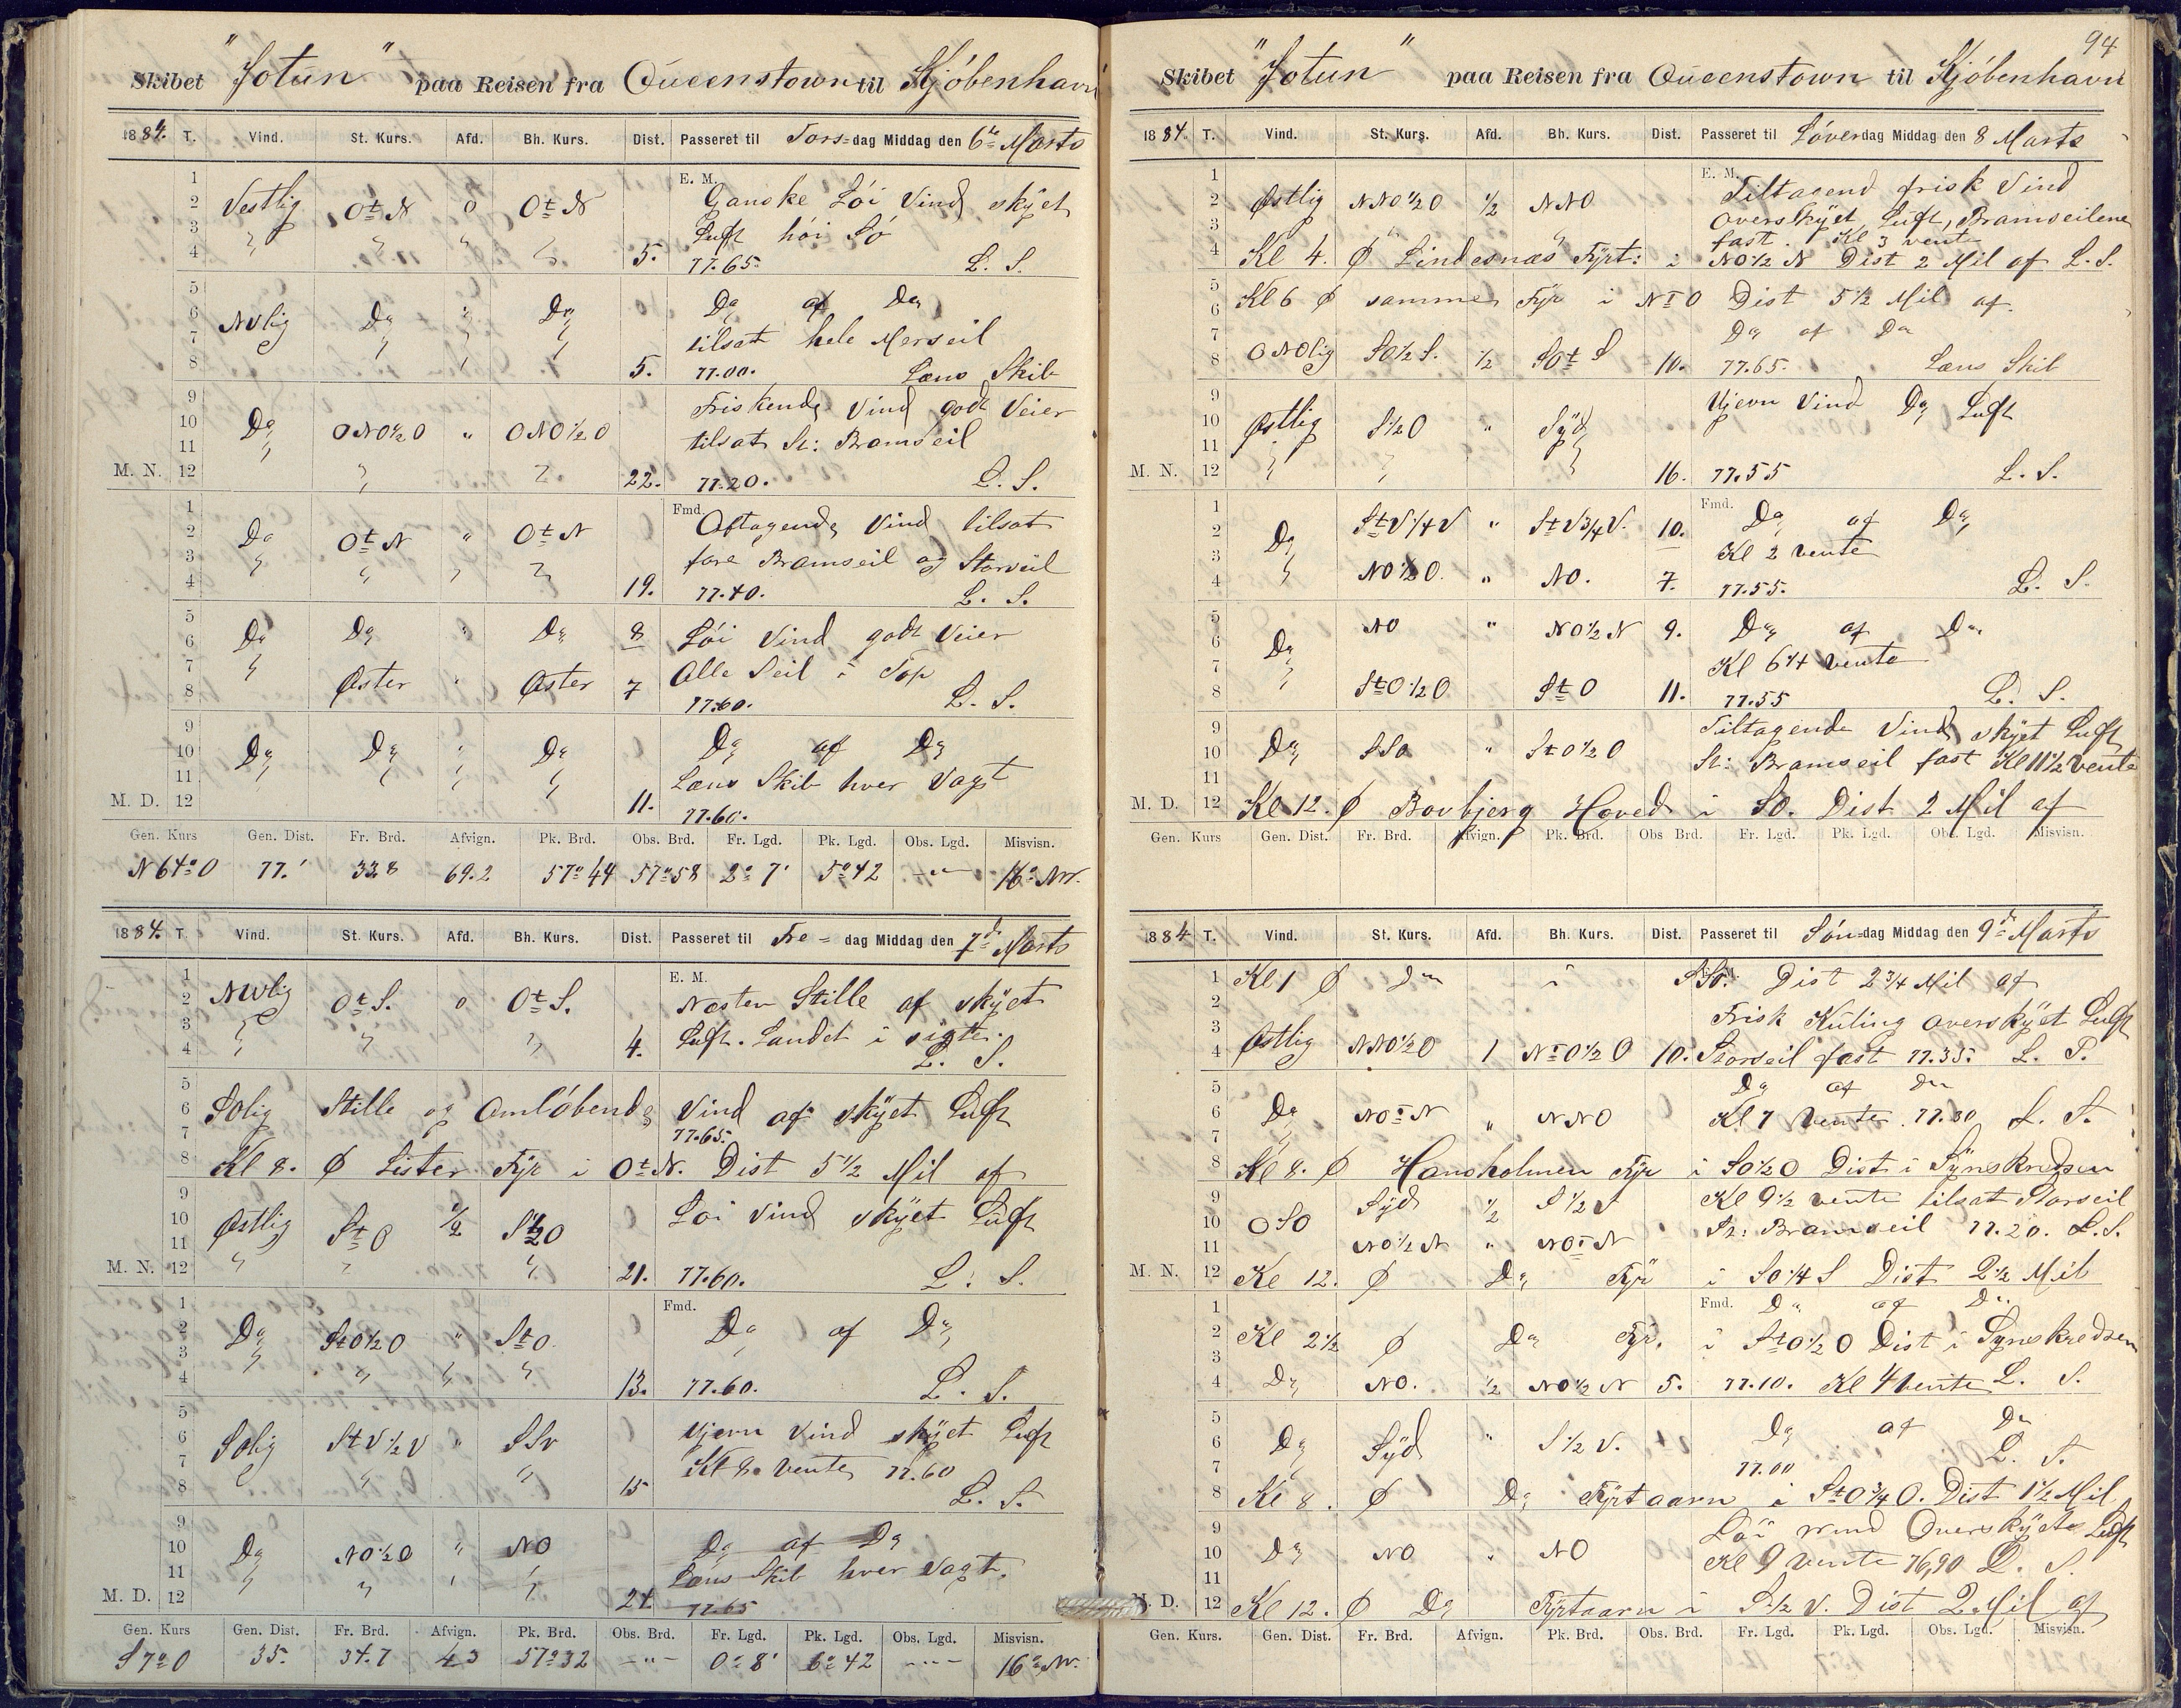 Skibet "Jotun" paa Reisen fra Queenstown til Kjöbenhavn
1884. T. Vind. St. Kurs. Afd. Bh. Kurs. Dist. Passeret til Tors=dag Middag den 6te Marts
1 E. M.
2 Vestlig OtN 0 OtN Ganske Löi Vind skÿet
3 " " " " Luft höi Sö
4 5. 77.65. L. S.
5
6 NVlig Do " Do Do af Do
7 " " " tilsat hele Merseil
8 5. 77.00. Læns Skib
9 Friskende Vind godt Veier
10 Do ONO½O " ONO½O tilsat St: Bramseil
11 "
M. N. 12 " " 22. 77.20. L. S.
1 Fmd. Aftagende Vind tilsat
2 Do OtN " OtN
3 " " " " fore Bramseil og Storseil
4 19. 77.40. L. S.
5
6 Do Do " Do 8 Löi Vind godt Veier
7 " Øster " Øster 7 Alle Seil i Top
8 77.60. L. S.
9
10 Do Do " Do Do af Do
11 " " " " Læns Skib hver Vagt
M. D. 12 11. 77.60.
Gen. Kurs Gen. Dist. Fr. Brd. Afvign. Pk. Brd. Obs. Brd. Fr. Lgd. Pk. Lgd. Obs. Lgd. Misvisn.
N 64° O 77.' 33.8 69.2 57°44 57°58 2° 7' 5°42 -"- 16° NW.
1884. T. Vind. St. Kurs. Afd. Bh. Kurs. Dist. Passeret til Fre= dag Middag den 7de Marts
1 E. M.
2 NWlig OtS. 0 OtS. Næsten Stille af skÿet
3 " " " Luft. Landet i sigte.
4 4. L. S.
5
6 SOlig Stille og Omlöbende Vind af skÿet Luft
7 77.65.
8 Kl 8. Ø Lister Fÿr i OtN. Dist 5½ Mil af
9
10 Østlig StO ½ S½O Löi Vind skÿet Luft
11 " " "
M. N. 12 21. 77.60. L. S.
1 Fmd.
2 Do StO½O " StO Do af Do
3 " " " "
4 13. 77.60. L. S.
5
6 SOlig StV½V " SSV Ujevn Vind skÿet Luft
7 " " Kl 8 vente 77.60
8 15 L. S.
9
10 Do NO½O " NO Do af Do
11 " " " " Læns Skib hver Vagt.
M. D. 12 24. 77.65
Gen. Kurs Gen. Dist. Fr. Brd. Afvign. Pk. Brd. Obs. Brd. Fr. Lgd. Pk. Lgd. Obs. Lgd. Misvisn.
S 7° O 35. 34.7 4.3 57°32 -"- 0° 8' 6°42 -"- 16° NW.
94
Skibet "Jotun" paa Reisen fra Queenstown til Kjöbenhavn
1884. T. Vind. St. Kurs. Afd. Bh. Kurs. Dist. Passeret til Löverdag Middag den 8 Marts
1 E. M. Tiltagend frisk Vind
2 Østlig NNO½O ½ NNO overskÿet Luft, Bramseilene
3 " " fast. Kl 3 vente
4 Kl 4. Ø Lindesnæs Fÿrt: i NO½N Dist 2 Mil af L. S.
5
6 Kl 6 Ø samme Fÿr i NtO Dist 5½ Mil af.
7 Do af Do
8 ONOlig SO½S. ½ SOtS 10. 77.65. Læns Skib
9 Ujevn Vind Do Luft
10 Østlig S½O " Sÿd
11 " " "
M. N. 12 16. 77.55 L. S.
1 Fmd. Do af Do
2 Do StV¼V " StV¾V. 10. Kl 2 vente
3 "
4 NO½O. " NO. 7. 77.55. L. S.
5
6 Do NO " NO½N 9. Do af Do
7 " Kl 6¼ vente
8 StO½O StO 11. 77.55 L. S.
9 Tiltagende Vind skÿet Luft
10 Do SSO " StO½O St: Bramseil fast Kl 11½ vente
11
M. D. 12 Kl 12. Ø Bovbjerg Hoved i SO. Dist 2 Mil af
Gen. Kurs Gen. Dist. Fr. Brd. Afvign. Pk. Brd. Obs Brd. Fr. Lgd. Pk. Lgd. Obs. Lgd. Misvisn.
1884 T. Vind. St. Kurs. Afd. Bh. Kurs. Dist. Passeret til Sön=dag Middag den 9de Marts
1 Kl 1 Ø Do i SSO. Dist 2¾ Mil af
2 Frisk Kuling overskÿet Luft
3
4 Østlig NNO½O 1 NtO½O 10. Storseil fast 77.35. L. S.
5 Do af Do
6 Do NOtN " NNO Kl 7 vente 77.30 L. S.
7 "
8 Kl 8. Ø Hansholmen Fÿr i SO½O Dist i Sÿnskredsen
9 Sÿd ½ S½ Kl 9½ vente tilsat Storseil
10 OSO St: Bramseil 77.20. L. S.
11 NO½N " NOtN
M. N. 12 Kl 12. Ø Do Fÿr i SO¼S Dist 2½ Mil
1 Fmd. Do af Do
2 Kl 2½ Ø Do Fÿr. i StO½O Dist i Sÿnskredsen
3
4 Do NO. ½ NO½N 5. 77.10. Kl 4 vente L. S.
5 Do af Do
6 Do Sÿd " S½V. L. S.
7 77.00
8 Kl 8. Ø Do Fÿrtaarn i StO¾O. Dist 1½ Mil
9 Löi Wind Overskÿet Luft
10 Do NO " NO Kl 9 vente 76,90 L. S.
11
M. D. 12 Kl 12. Ø Do Fÿrtaarn i S½V. Dist 2 Mil af
Gen. Kurs. Gen. Dist. Fr. Brd. Afvign. Pk. Brd. Obs. Brd. Fr. Lgd. Pk. Lgd. Obs. Lgd. Misvisn.